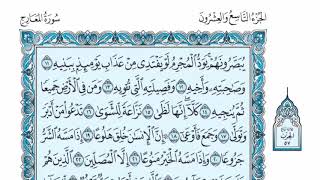 الجُزْءُ التَّاسِعُ وَالعِشْرُونَ
سُورَةُ المَعَارِجِ
يُبَصَّرُونَهُمْ يَوَدُّ الْمُجْرِمُ لَوْ يَفْتَدِى مِنْ عَذَابِ يَوْمِئِذٍ بِبَنِيهِ ١١
وَصَٰحِبَتِهِۦ وَأَخِيهِ ١٢ وَفَصِيلَتِهِ الَّتِى تُـْٔوِيهِ ١٣ وَمَن فِى الْأَرْضِ جَمِيعًا
ثُمَّ يُنجِيهِ ١٤ كَلَّآ إِنَّهَا لَظَىٰ ١٥ نَزَّاعَةً لِّلشَّوَىٰ ١٦ تَدْعُوا۟ مَنْ أَدْبَرَ
وَتَوَلَّىٰ ١٧ وَجَمَعَ فَأَوْعَىٰٓ ١٨ إِنَّ الْإِنسَٰنَ خُلِقَ هَلُوعًا ١٩ إِذَا مَسَّهُ الشَّرُّ
جَزُوعًا ٢٠ وَإِذَا مَسَّهُ الْخَيْرُ مَنُوعًا ٢١ إِلَّا الْمُصَلِّينَ ٢٢ الَّذِينَ هُمْ
الحزب
٥٧